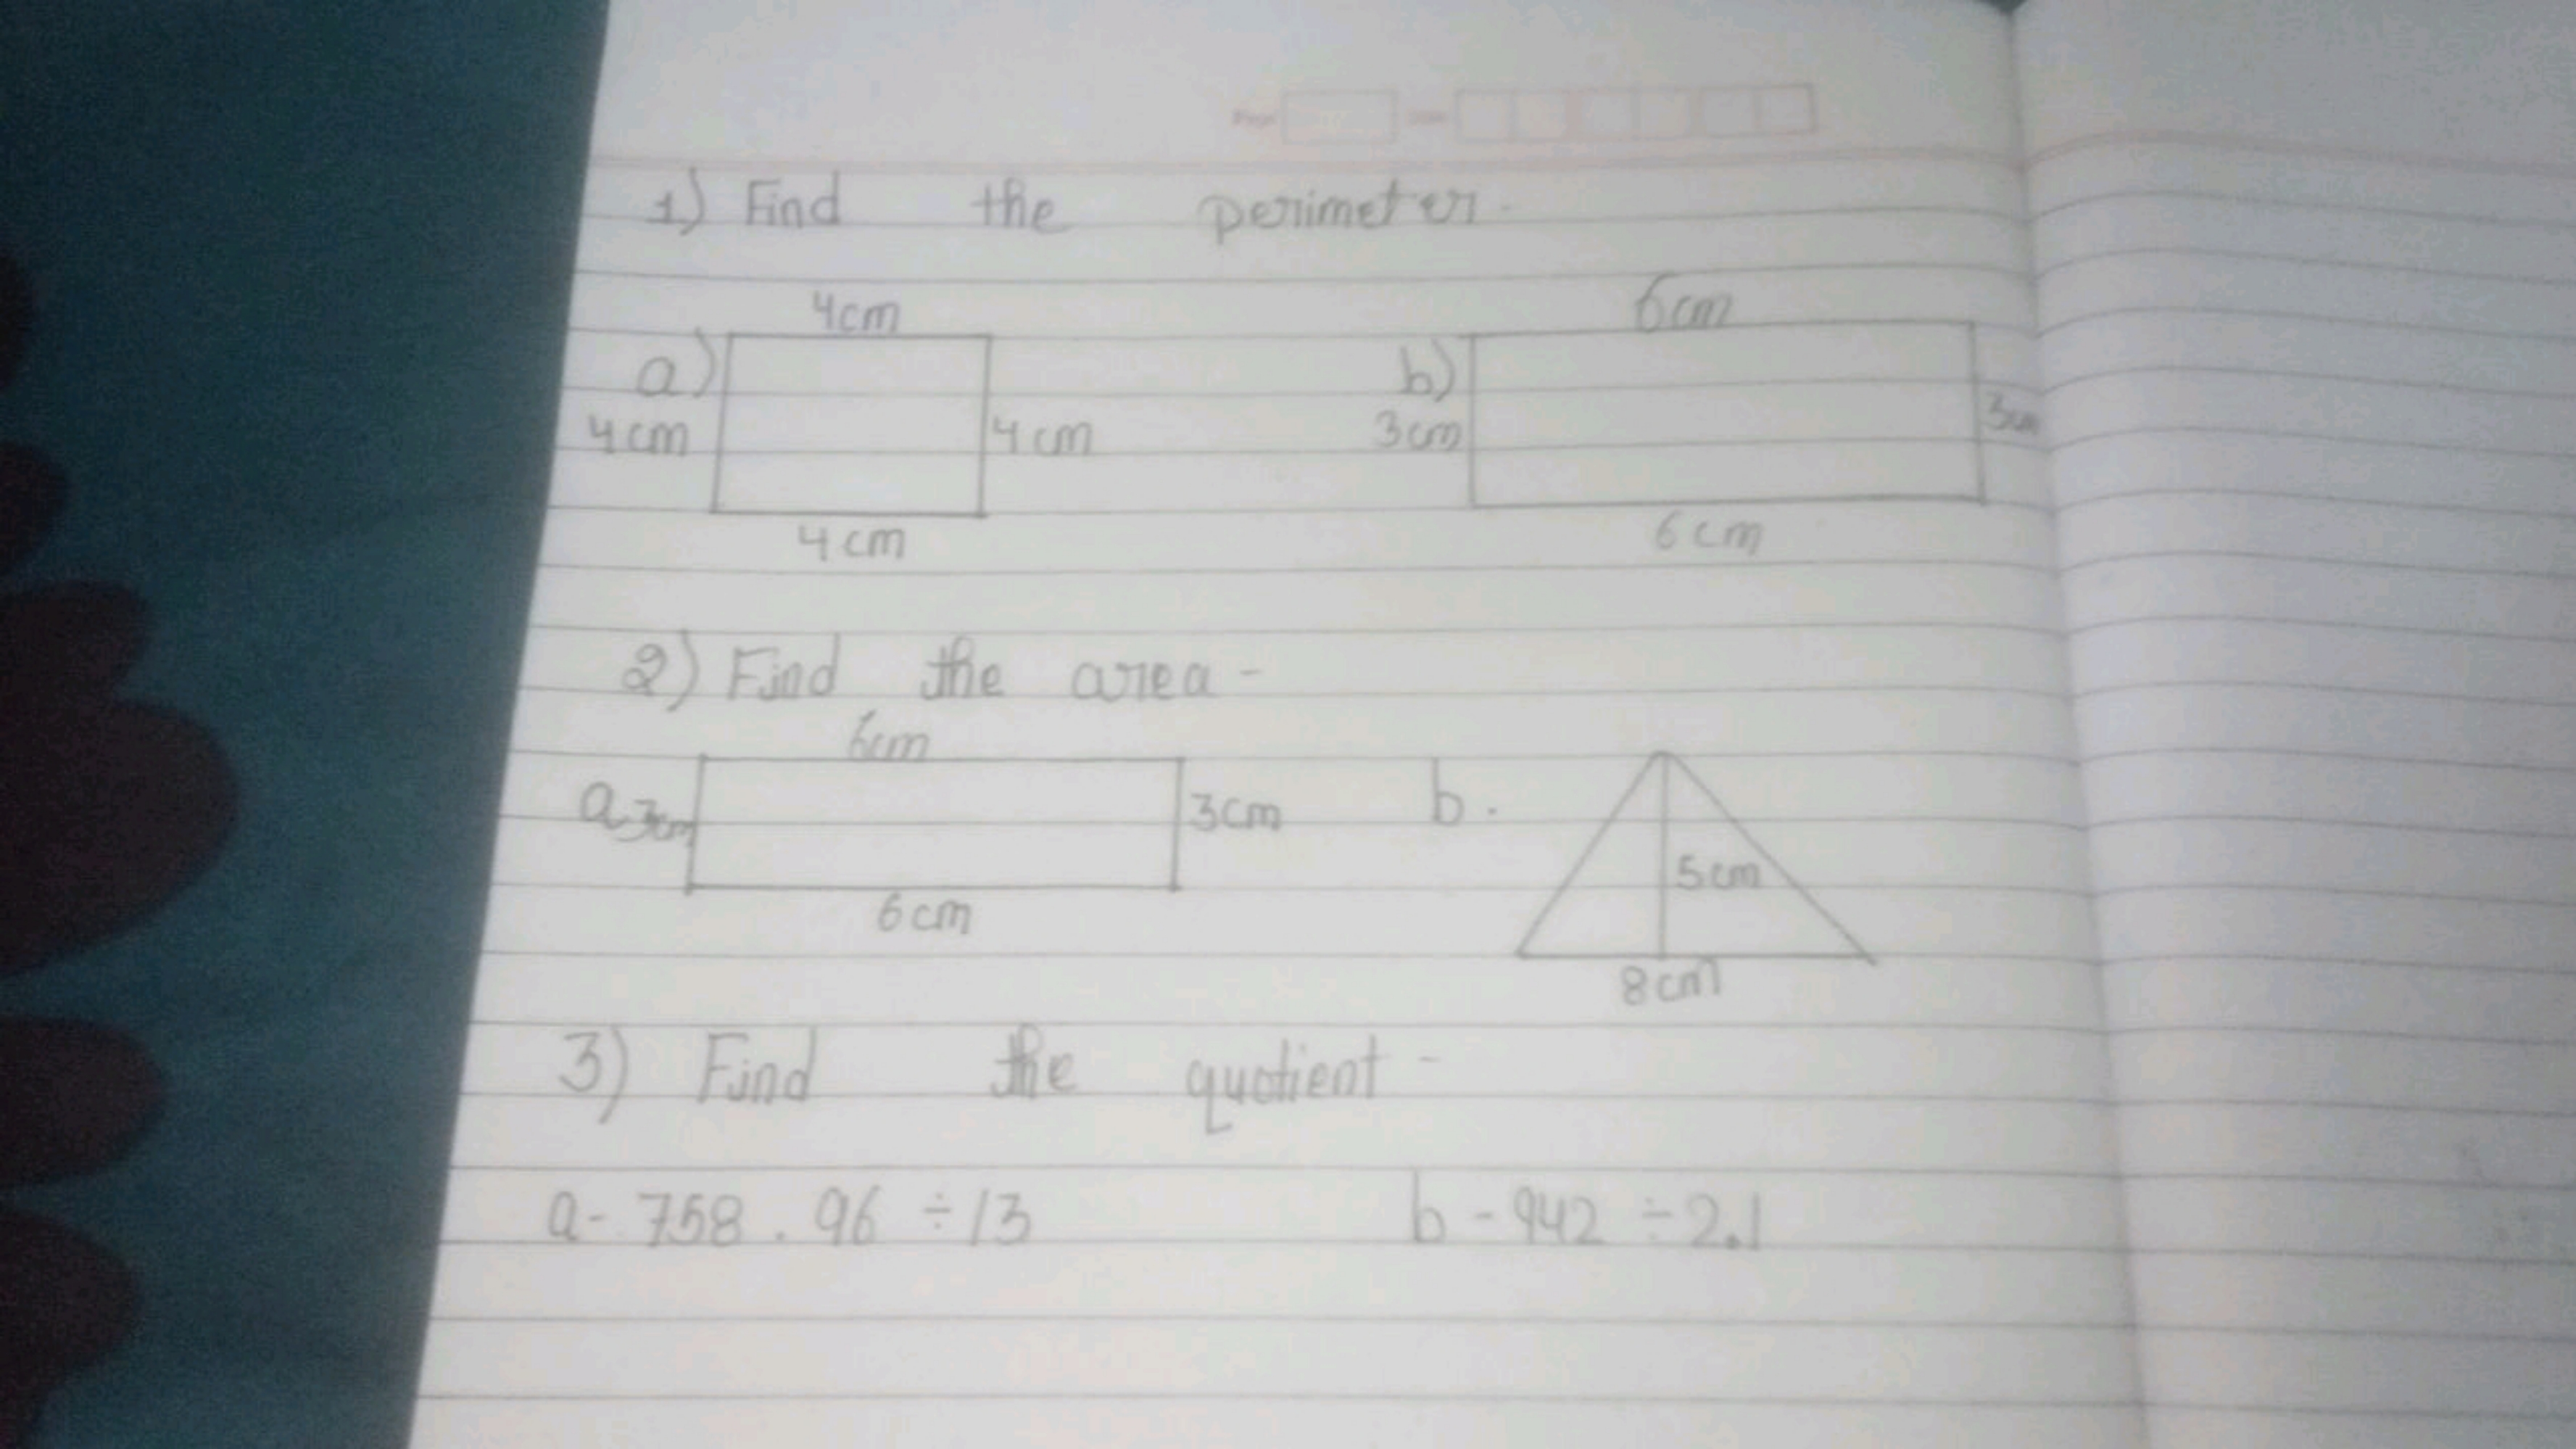 1) Find the perimeter -
4cm 6cm
a) b)
4cm 4cm 3cm 3cm
4cm 6cm
2) Find the area -
6cm
a 3cm 3cm b.
5cm
6cm
8cm
3) Find the quotient -
a- 758.96 ÷ 13 b - 942 ÷ 2.1